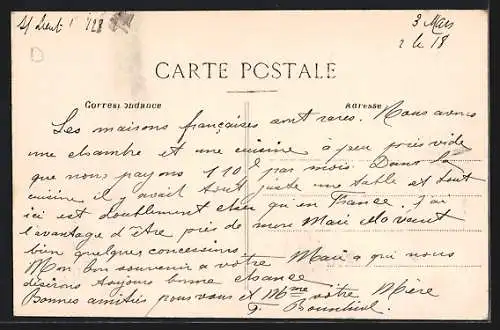 3 Mars
CARTE POSTALE
Correspondance
Adresse
Les maisons françaises sont rares. Nous avons
une chambre et une cuisine à peu près vide
que nous payons 110 par mois. Dans la
cuisine il y avait tout juste une table et tout
ici est doublement cher qu'en France. J'ai
l'avantage d'être près de mon Mari cela vaut
bien quelques concessions
Mon bon souvenir à votre Mari à qui nous
désirons toujours bonne chance
Bonnes amitiés pour vous et Mme votre Mère